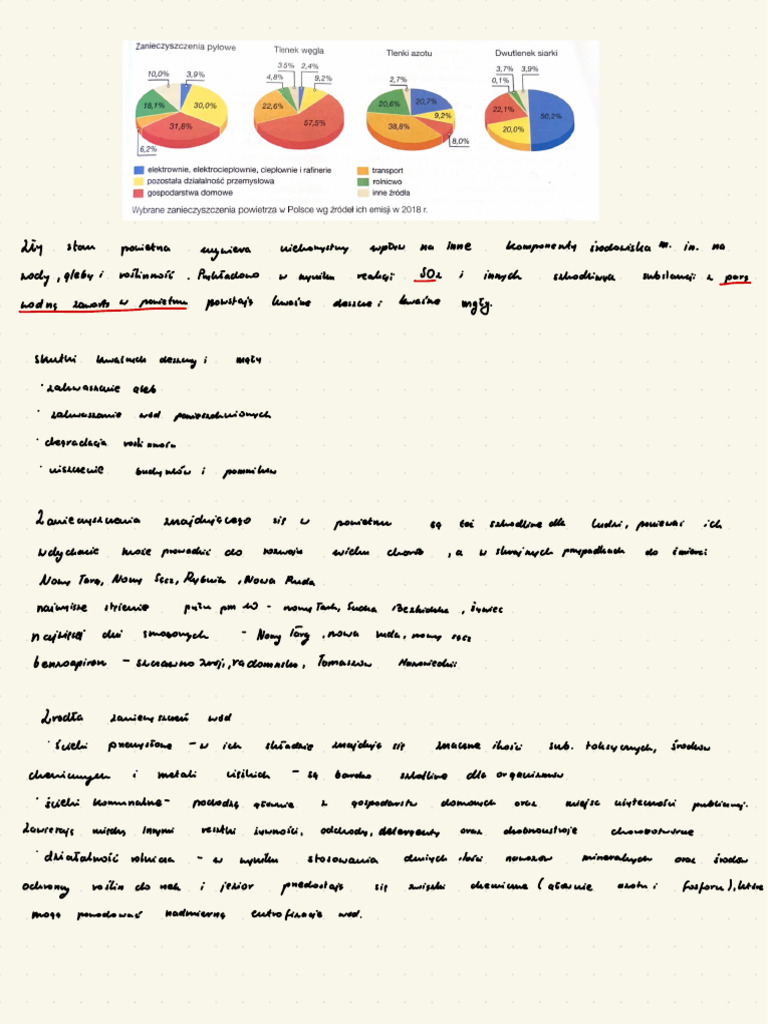 Zanieczyszczenia pyłowe
Tlenek węgla
Tlenki azotu
Dwutlenek siarki
10,0% 3,9% 30,0% 31,8% 6,2% 18,1%
3,5% 2,4% 9,2% 57,5% 22,6% 4,8%
2,7% 20,7% 9,2% 8,0% 38,8% 20,6%
3,7% 3,9% 0,1% 50,2% 20,0% 22,1%
elektrownie, elektrociepłownie, ciepłownie i rafinerie
pozostała działalność przemysłowa
gospodarstwa domowe
transport
rolnictwo
inne źródła
Wybrane zanieczyszczenia powietrza w Polsce wg źródeł ich emisji w 2018 r.
Zły stan powietrza wywiera niekorzystny wpływ na inne komponenty środowiska m. in. na
wody, gleby i roślinność. Przykładowo w wyniku reakcji SO2 i innych szkodliwych substancji z parą
wodną zawartą w powietrzu powstają kwaśne deszcze i kwaśne mgły.
Skutki kwaśnych deszczy i mgły
· zakwaszenie gleb
· zakwaszanie wód powierzchniowych
· degradacja roślinności
· niszczenie budynków i pomników
Zanieczyszczenia znajdującego się w powietrzu są też szkodliwe dla ludzi, ponieważ ich
wdychanie może prowadzić do rozwoju wielu chorób, a w skrajnych przypadkach do śmierci
Nowy Targ, Nowy Sącz, Rybnik, Nowa Ruda
najwyższe stężenie pyłu pm 10 - nowy Targ, Sucha Beskidzka, Żywiec
najwięcej dni smogowych - Nowy Targ, nowa ruda, nowy sącz
benzoapiren - szczawno zdrój, radomsko, Tomaszów Mazowiecki
Źrodła zanieczyszczeń wód
· Ścieki przemysłowe - w ich składzie znajdują się znaczne ilości sub. toksycznych, środków
chemicznych i metali ciężkich - są bardzo szkodliwe dla organizmów
· ścieki komunalne - pochodzą głównie z gospodarstw domowych oraz miejsc użyteczności publicznej.
Zawierają między innymi resztki żywności, odchody, detergenty oraz drobnoustroje chorobotwórcze
· działalność rolnicza - w wyniku stosowania dużych ilości nawozów mineralnych oraz środków
ochrony roślin do rzek i jezior przedostają się związki chemiczne (głównie azotu i fosforu), które
mogą powodować nadmierną eutrofizację wód.